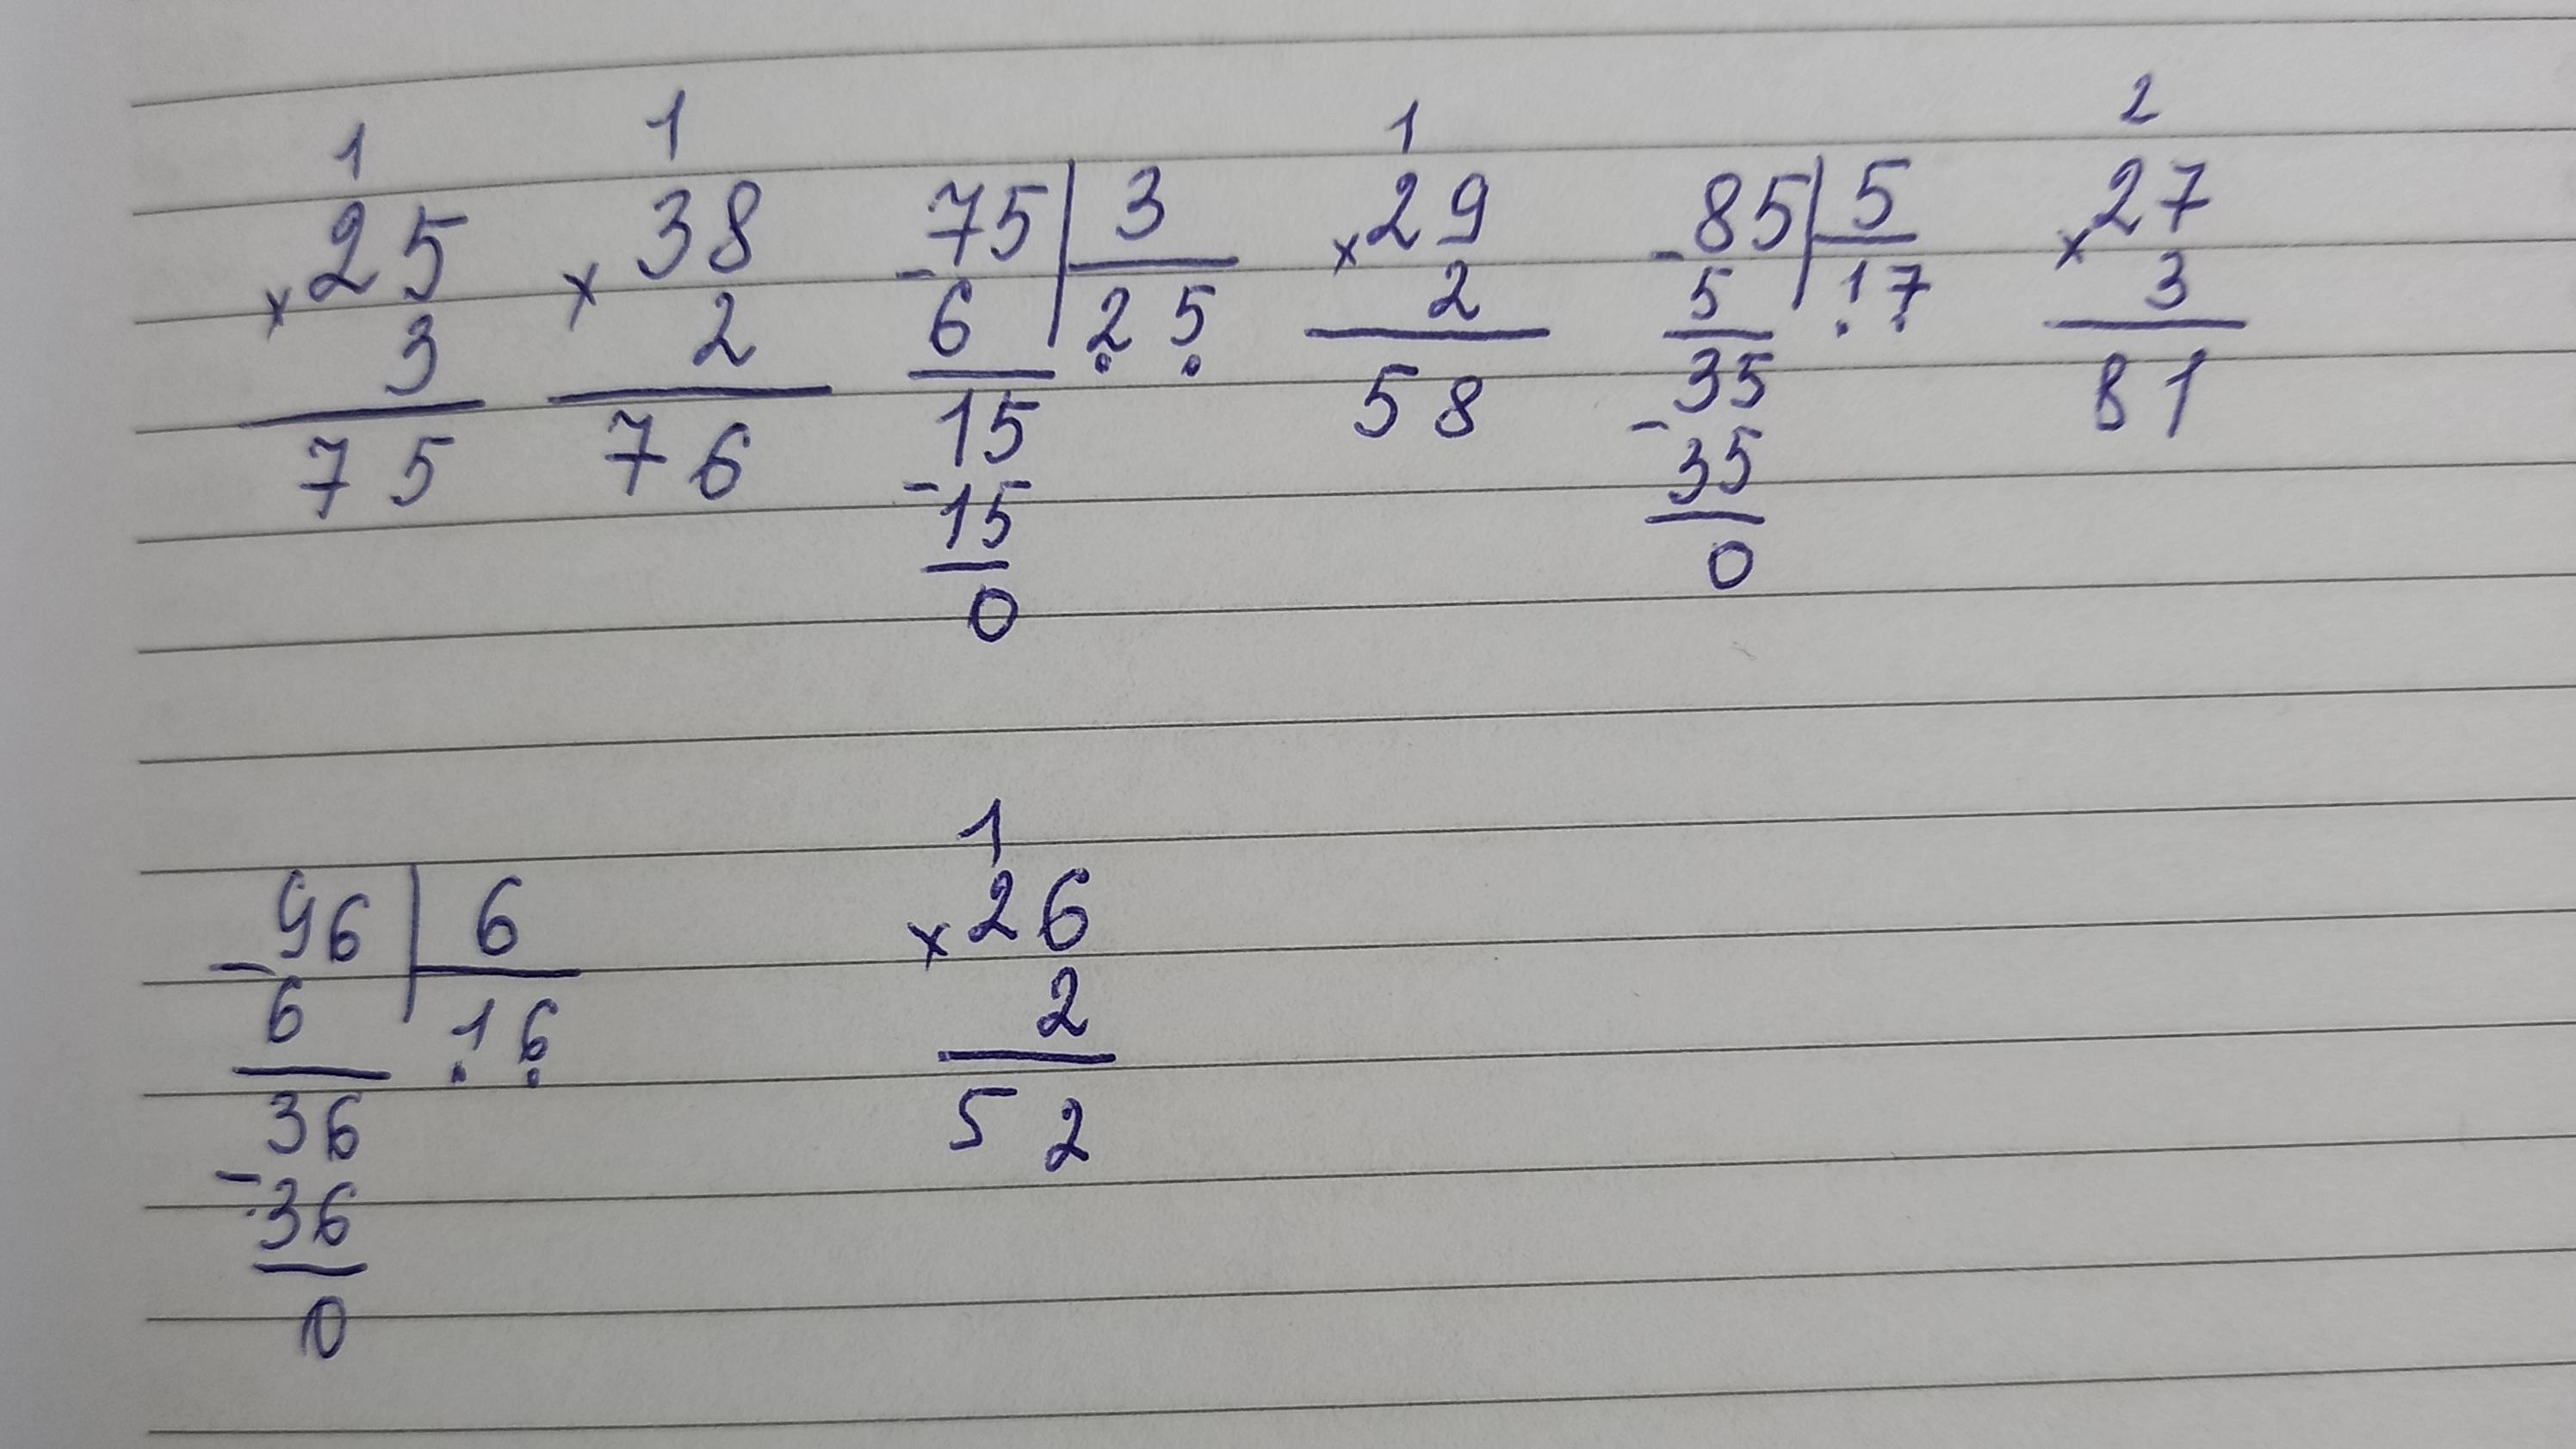 1 1 1 2
25 38 75 | 3 29 85 | 5 27
× × - × - ×
3 2 6 25 2 5 17 3
75 76 15 58 35 81
- -
15 35
0 0
1
96 | 6 26
- ×
6 16 2
36 52
-
36
0